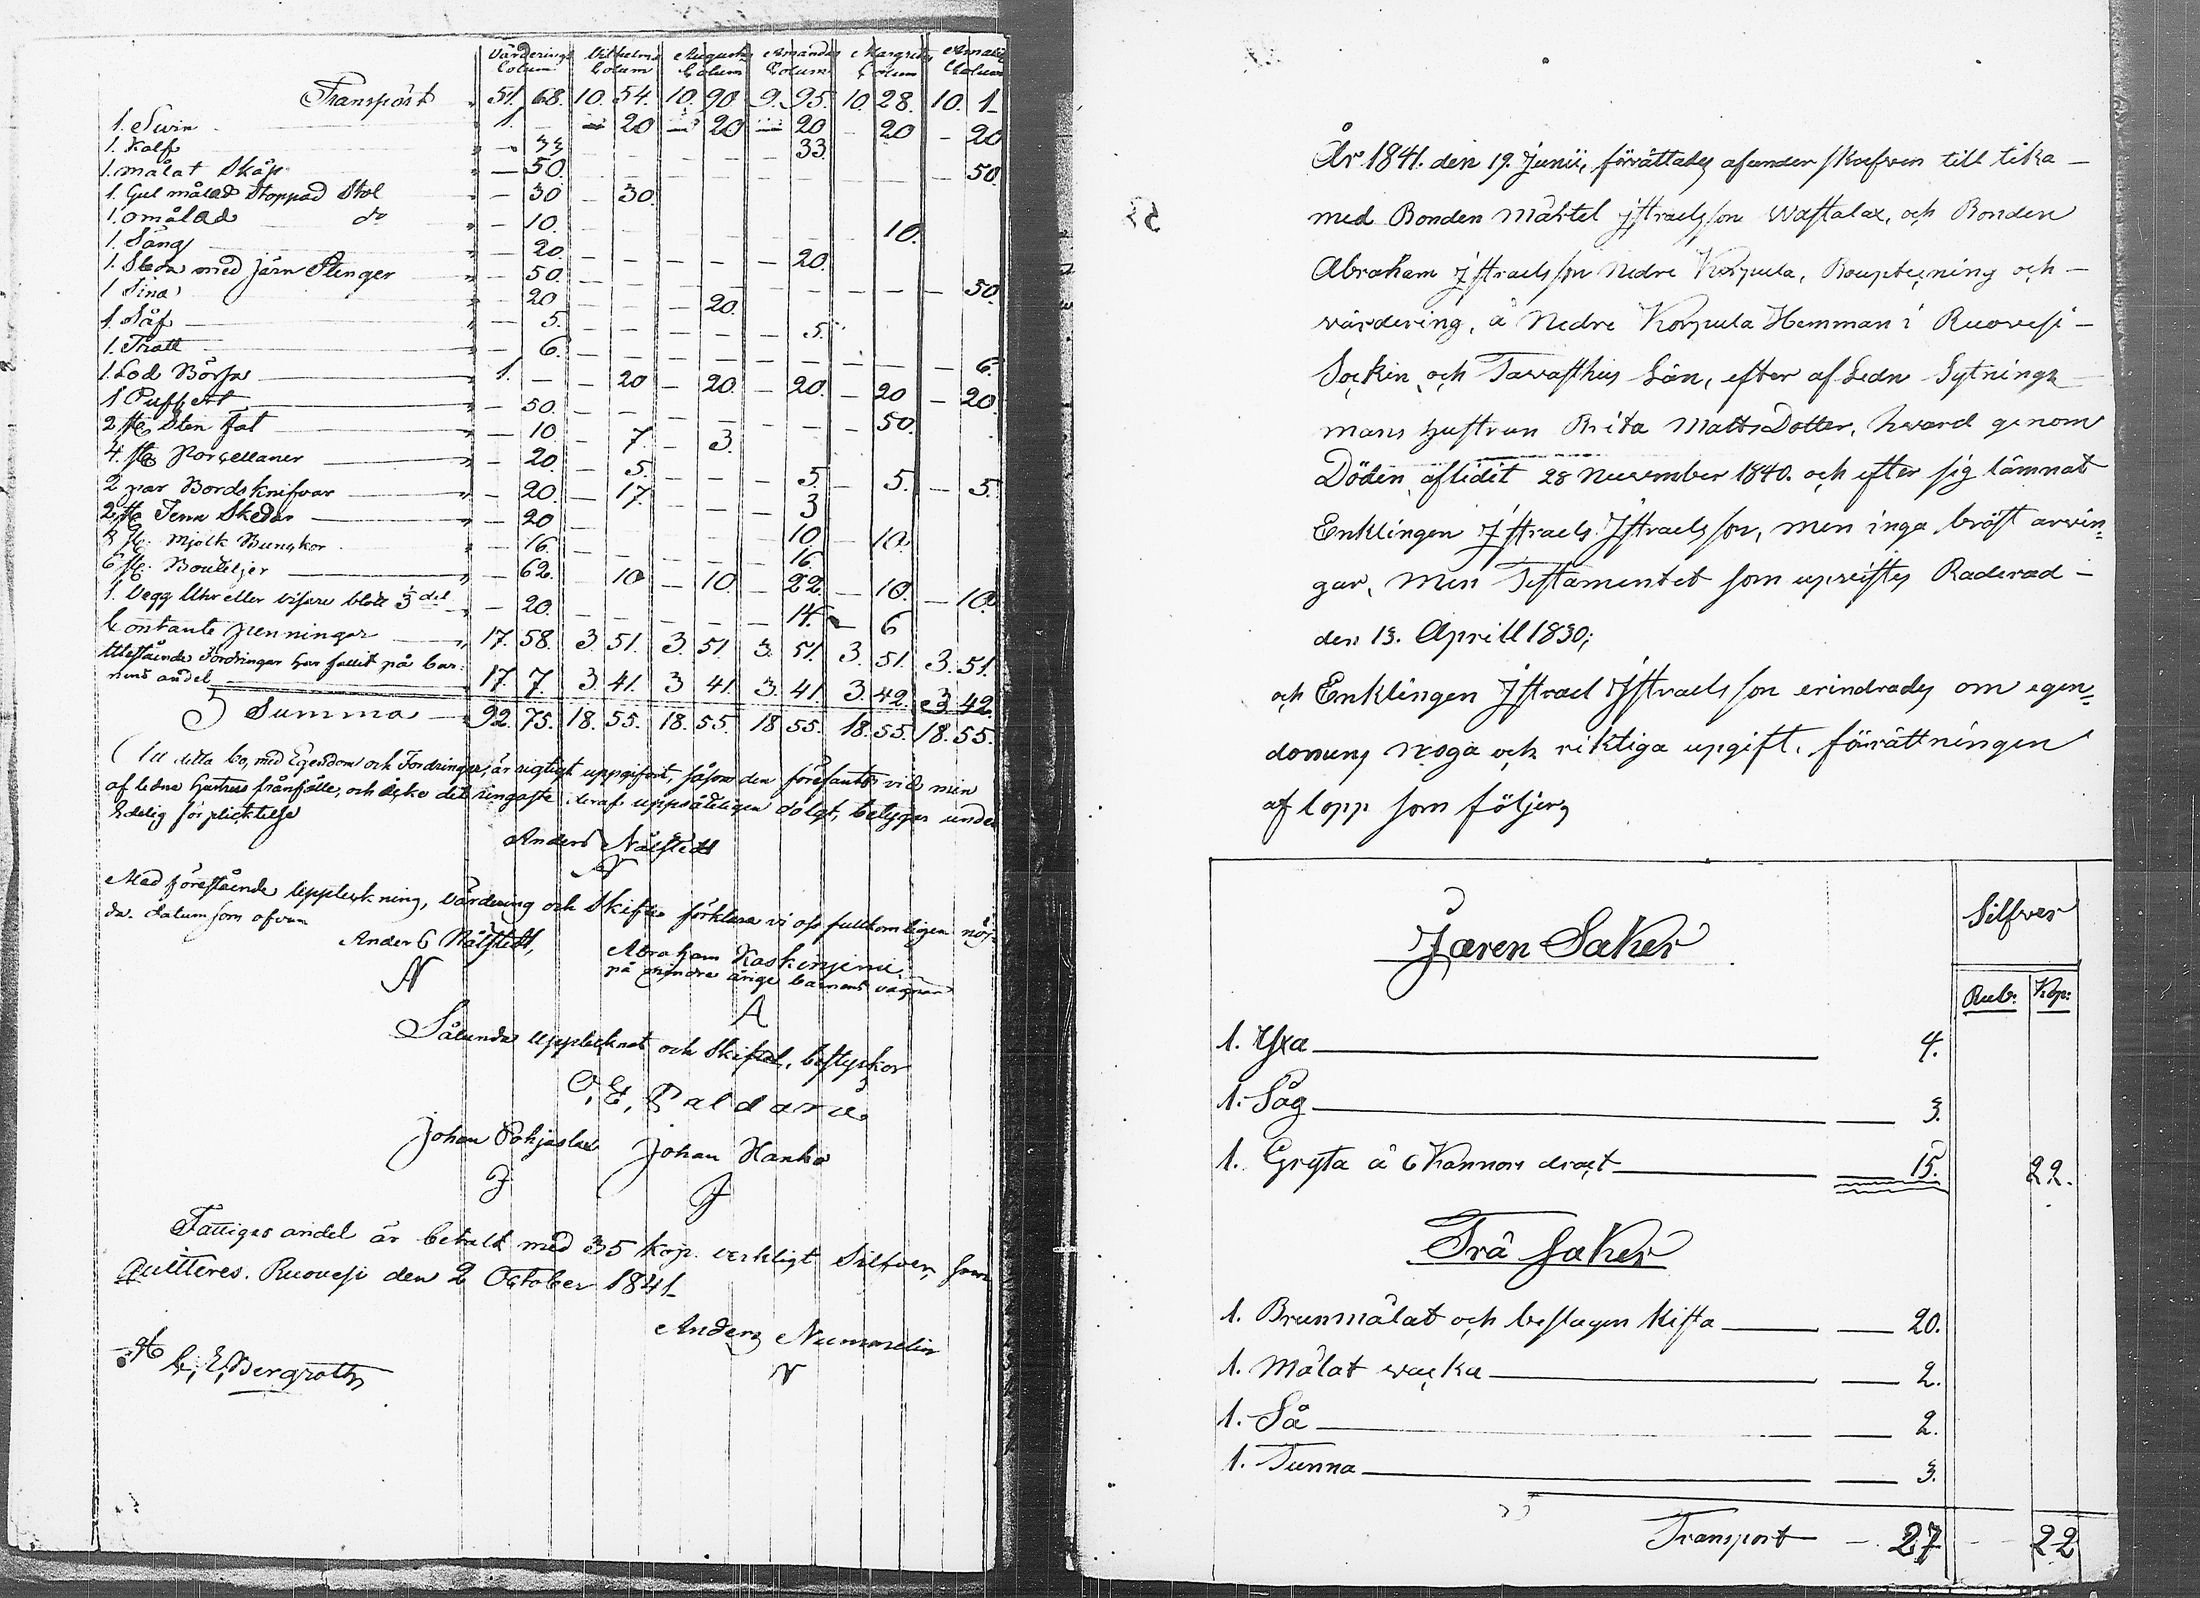 Värderings Colum Vilhelms Colum Augusts Colum Amandas Colum Margretas Colum Amalias Colum
Transport 51. 68. 10. 54. 10. 90 9. 95. 10 28. 10. 1
1. Swin 1. — 20 20 20 20 20
1. Kalf — 33 33.
1. målat Skåp — 50. 50.
1 Gul målad Stoppad Stol — 30 30.
1. omålad do — 10. 10.
1. Säng — 20. 20.
1. Släda med järn Stenger — 50. 50.
1 Sina — 20 20.
1. Såf — 5. 5.
1. Tratt — 6. 6.
1. Lod Börsa 1. — 20 20. 20. 20 20.
1 Puffert — 50. 50.
2 st Sten Fat — 10 7 3.
4. st Porçellaner — 20. 5. 5 5. 5.
2 par Bordsknifvar — 20. 17. 3
2 st Tenn Skedar — 20 10 10.
8 st. Mjölk Bunckor — 16. 16.
6 st. Bouteljer — 62. 10 10. 22. 10. 10.
1. Vegg Uhr eller visare blott 1/3 del — 20. 14. 6
Contante penningar 17. 58. 3 51. 3. 51 3. 51. 3. 51. 3. 51.
Utestående Fordringar har fallit på bar-
nens andel 17. 7. 3 41. 3 41. 3. 41 3. 42. 3 42.
Summa 92. 75. 18. 55. 18. 55 18 55. 18. 55. 18. 55.
At detta bo, med Egendom och Fordringar, är rigtigt uppgifvit, såsom den förefants vid min
afledna hustrus frånfälle, och icke det ringaste deraf uppsåteligen dolgt, betygar under
Edelig förplicktelse
Anders Nålstedt
N
Med förestående Uppteckning, värdering och Skifte förklara vi oss fullkomligen nöj-
da. datum som ofvan
Anders Nålstedt,
N
Abraham Kaskinjemi
på mindre årige barnens vägnar
A
Sålunda upptecknat och skiftat, bestyrker
O, E, Paldanius
Johan Pohjaslax Johan Hanho
J J
Fattiges andel är betalt med 35 kop. verkligt Silfver, som
quitteres. Ruovesi den 2 October 1841
Anders Nummelin
N
C, E, Bergroth
År 1841. den 19. Junii, förrättades afunder skrefven till lika —
med Bonden Mårtel Jsraelsson Wastalax, och Bonden
Abraham Jsraelsson Nedre Korpula, Boupteçning och —
värdering, å Nedre Korpula Hemman i Ruovesi —
Sockin och Tawasthus Län, efter afledn Sytnings
mans hustrun Brita Matts Dotter, hvard genom
Döden aflidit 28 November 1840. och efter sig lämnat
Enklingen Jsraels Jsraelsson, men inga bröst arvin-
gar, men Testamentet som upvistes Raderad —
den 13. Aprill 1830;
och Enklingen Jsrael Jsraelsson erindrades om egen-
domens noga och riktiga upgift. förrättningen
aflopp som följer,
Silfver
Jæren Saker
Rub: Kop:
1. Yxa 4.
1. Såg 3.
1. Gryta á 6 Kannors dract 15. 22.
Trä saker
1. Brunmålat och beslagen Kista 20.
1. Målat vacka 2.
1. Så 2.
1. Tunna 3.
Transport 27 22